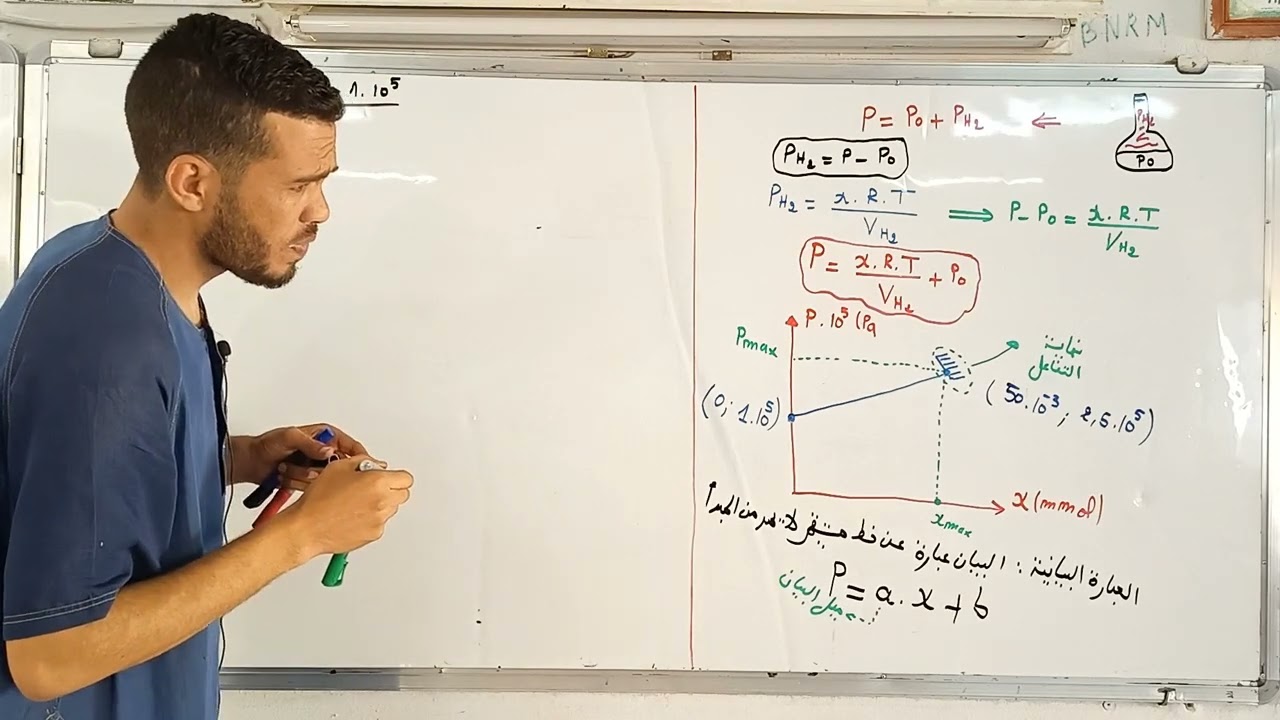 BNRM
1.10⁵
P = P₀ + P_H₂ ⇐
P_H₂
P₀
P_H₂ = P - P₀
P_H₂ = x.R.T / V_H₂ ⟹ P - P₀ = x.R.T / V_H₂
P = x.R.T / V_H₂ + P₀
P.10⁵ (Pa
Pmax
نهاية
التفاعل
(0; 1.10⁵)
(50.10⁻³; 2,5.10⁵)
x(mmol)
xmax
العبارة البيانية: البيان عبارة عن خط مستقيم لا يمر من المبدأ
P = a.x + b
ميل البيان